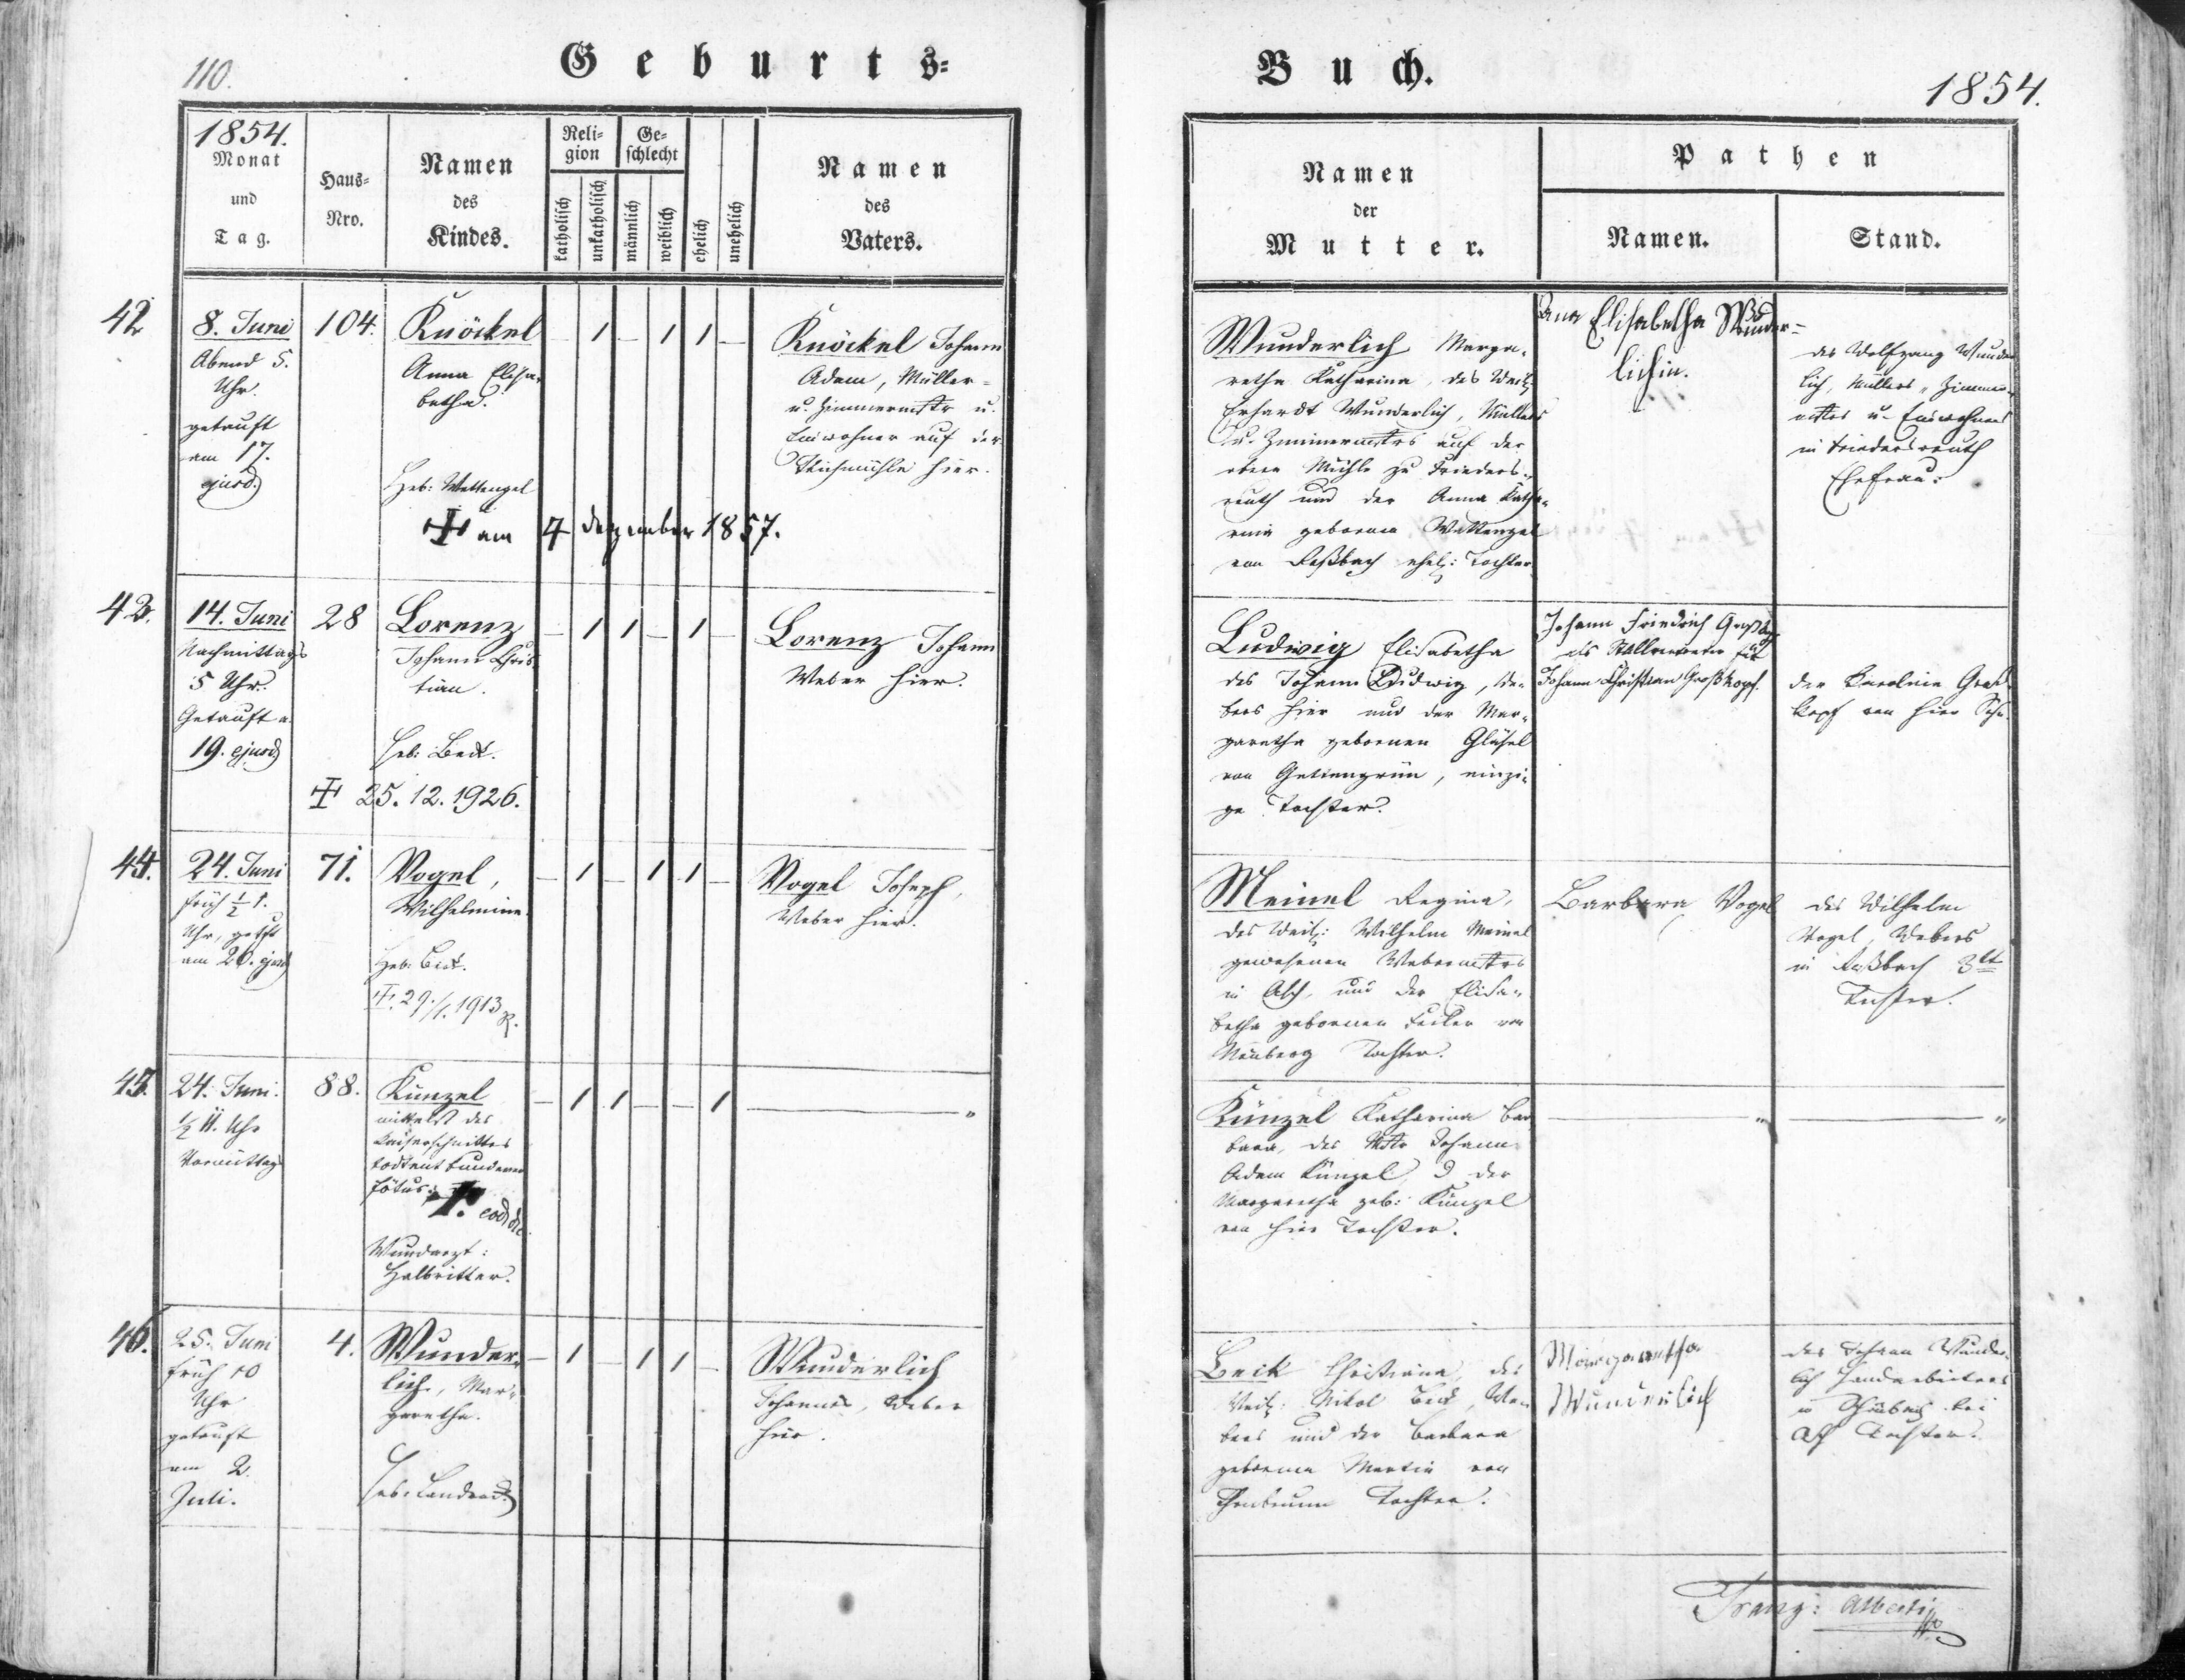 110.
Geburts=
1854.
Monat
und
Tag.
Haus=
Nro.
Namen
des
Kindes.
Reli=
gion
katholisch
unkatholisch
Ge=
schlecht
männlich
weiblich
ehelich
unehelich
Namen
des
Vaters.
42
8. Juni
Abend 5.
Uhr.
getauft
am 17.
ejusd.
104.
Knöckel
Anna Elisa-
betha.
Heb: Wettengel
am 4 Dezember 1857.
– 1 – 1 1 –
Knöckel Johann
Adam, Müller=
u. Zimmermstr u.
Einwohner auf der
hier.
43.
14. Juni
Nachmittags
5 Uhr.
Getauft a.
19. ejusd
28
Lorenz
Johann Chris-
tian.
Heb: Beck.
25.12.1926.
– 1 1 – 1 –
Lorenz Johann
Weber hier.
44.
24. Juni
früh ½ 1.
Uhr, getft
am 26. ejusd
71.
Vogel,
Wilhelmine.
Heb: Beck.
29./1. 1913
– 1 – 1 1 –
Vogel Joseph,
Weber hier.
45.
24. Juni.
½ 11. Uhr
Vormittag
88.
Künzel
mittelst des
Kaiserschnittes
todtentbundener
Fötus.
eod die
Wundarzt:
Halbritter.
– 1 1 – – 1
46.
25. Juni
früh 10
Uhr
getauft
am 2.
Juli.
4.
Wunder-
lich, Mar-
garetha.
Heb: Landrock
– 1 – 1 1 –
Wunderlich
Johannes, Weber
hier.
Buch.
1854.
Namen
der
Mutter.
Pathen
Namen.
Stand.
Wunderlich Marga-
retha Katharina, des Weil.
Erhardt Wunderlich, Müllers
u. Zimmermstrs auf der
obern Mühle zu Frieders-
reuth und der Anna Katha-
rina gebornen Wettengel
von Roßbach ehel: Tochter
Anna Elisabetha Wunder=
lichin.
des Wolfgang Wunder
lich, Müllers, Zimmer-
mstrs u. Einwohners
in Friedersreuth
Ehefrau.
Ludwig Elisabetha
des Johann Ludwig, We-
bers hier und der Mar-
garetha gebornen Gläsel
von Gettengrün, einzi-
ge Tochter.
Johann Friedrich Großkopf
als Stellvertreter für
Johann Christian Großkopf.
der Karolina Groß-
kopf von hier Sohn.
Meinel Regina,
des Weil: Wilhelm Meinel
gewesenen Webermstrs
in Asch, und der Elisa-
betha gebornen Feiler von
Neuberg Tochter.
Barbara Vogel
des Wilhelm
Vogel, Webers
in Roßbach 3te
Tochter.
Künzel Katharina Bar
bara, des Mstr Johann
Adam Künzel, der
Margaretha geb: Künzel
von hier Tochter.
Beck Christiana, des
Weil: Nikol Beck, We-
bers und der Barbara
gebornen Martin von
Tochter.
Margaretha
Wunderlich
des Johann Wunder-
lich Handarbeiters
in Schönbach bei
Asch Tochter.
Franz: Alberti